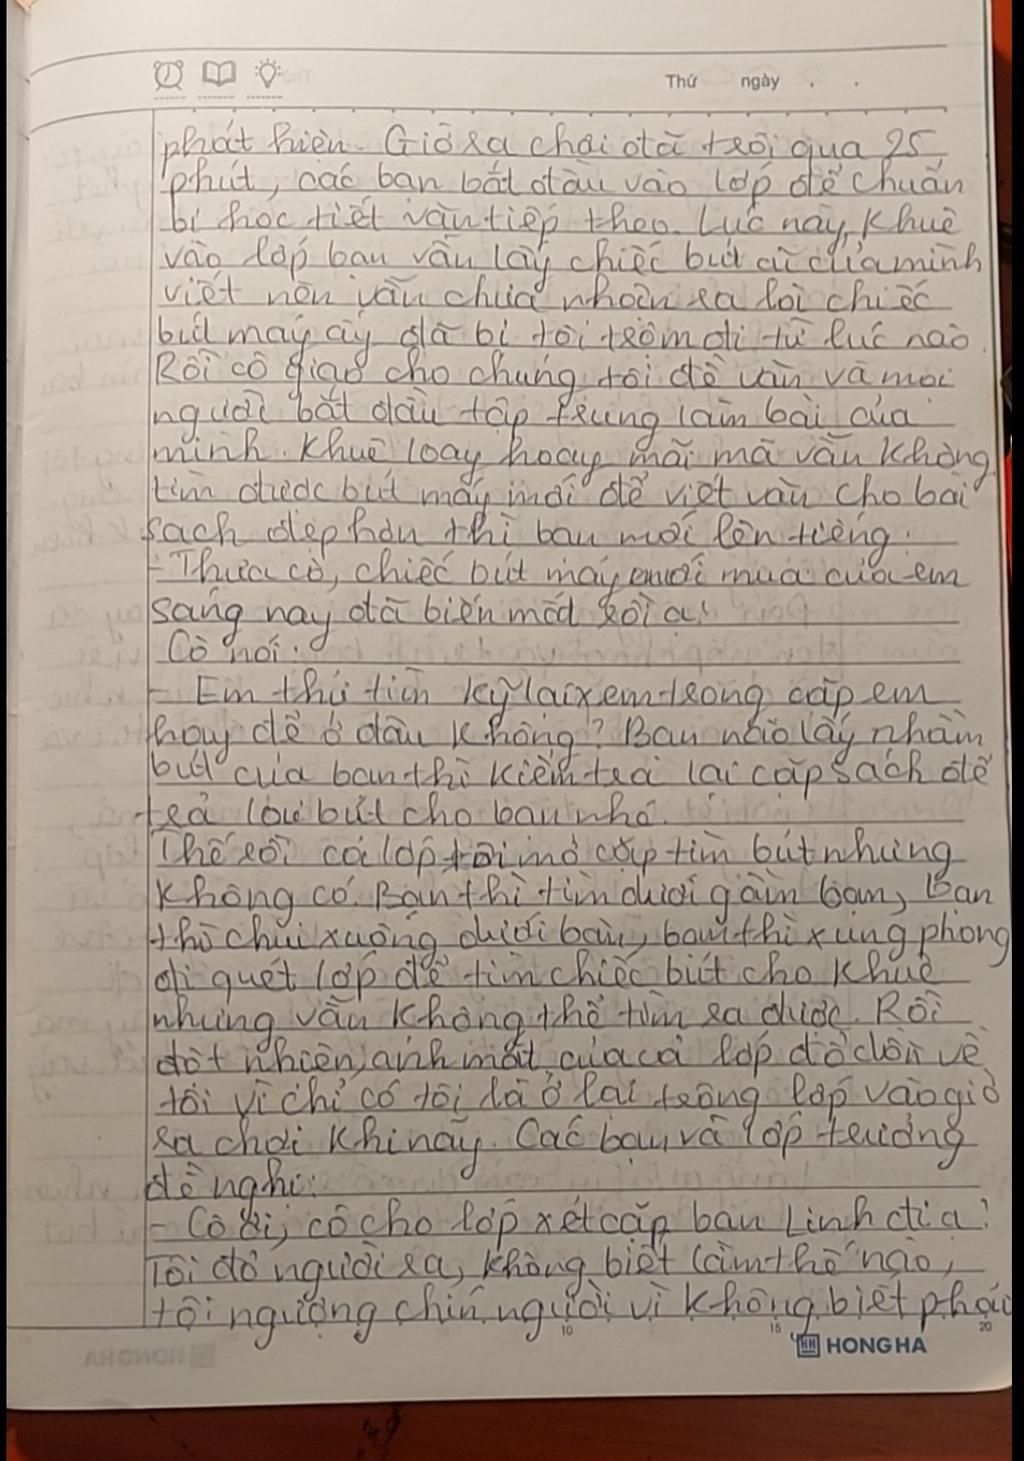 Thứ ngày . .
phát hiện. Giờ ra chơi đã trôi qua 25
phút, các bạn bắt đầu vào lớp để chuẩn
bị học tiết văn tiếp theo. Lúc này, Khuê
vào lớp bạn vẫn lấy chiếc bút cũ của mình
viết nên vẫn chưa nhận ra rồi chiếc
bút máy ấy đã bị tôi trộm đi từ lúc nào.
Rồi cô giáo cho chúng tôi đề văn và mọi
người bắt đầu tập trung làm bài của
mình. Khuê loay hoay mãi mà vẫn không
tìm được bút máy mới để viết văn cho bài
sạch đẹp hơn thì bạn mới lên tiếng:
- Thưa cô, chiếc bút máy mới mua của em
sáng nay đã biến mất rồi ạ!
Cô nói:
- Em thử tìm kỹ lại xem trong cặp em
hay để ở đâu không? Bạn nào lấy nhầm
bút của bạn thì kiểm tra lại cặp sách để
trả lại bút cho bạn nhé.
Thế rồi cả lớp tôi mở cặp tìm bút nhưng
không có. Bạn thì tìm dưới gầm bàn, bạn
thì chui xuống dưới bàn, bạn thì xung phong
đi quét lớp để tìm chiếc bút cho Khuê
nhưng vẫn không thể tìm ra được. Rồi
đột nhiên, ánh mắt của cả lớp đổ dồn về
tôi vì chỉ có tôi là ở lại trong lớp vào giờ
ra chơi khi nãy. Các bạn và lớp trưởng
đề nghị:
- Cô ơi, cô cho lớp xét cặp bạn Linh đi ạ!
Tôi đờ người ra, không biết làm thế nào,
tôi ngượng chín người vì không biết phải
10 15 20
HONG HA